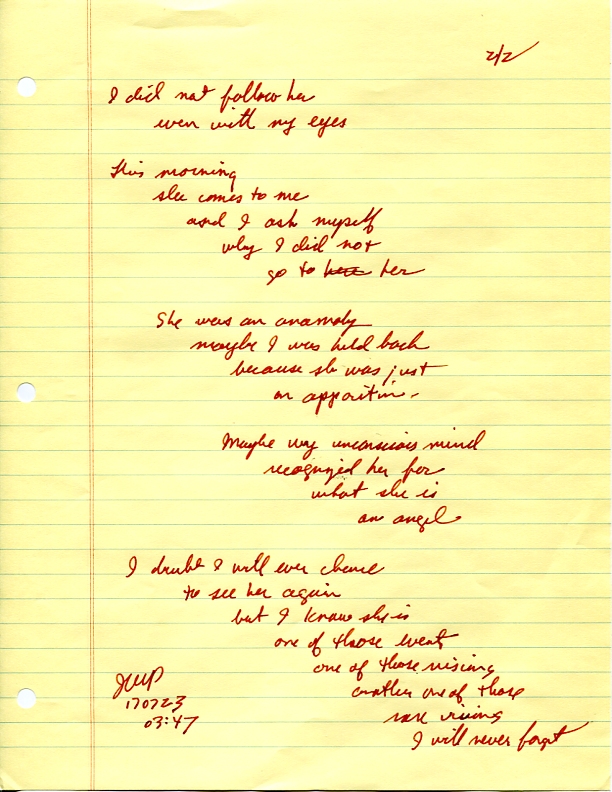 2/2
I did not follow her
even with my eyes
This morning
she comes to me
and I ask myself
why I did not
go to here her
She was an anamoly
maybe I was held back
because she was just
an appartin.
Maybe my unconscious mind
recognized her for
what she is
an angel
I doubt I will ever chance
to see her again
but I know she is
one of those events
one of those visions
another one of those
rare visions
I will never forget
JWP
170723
03:47